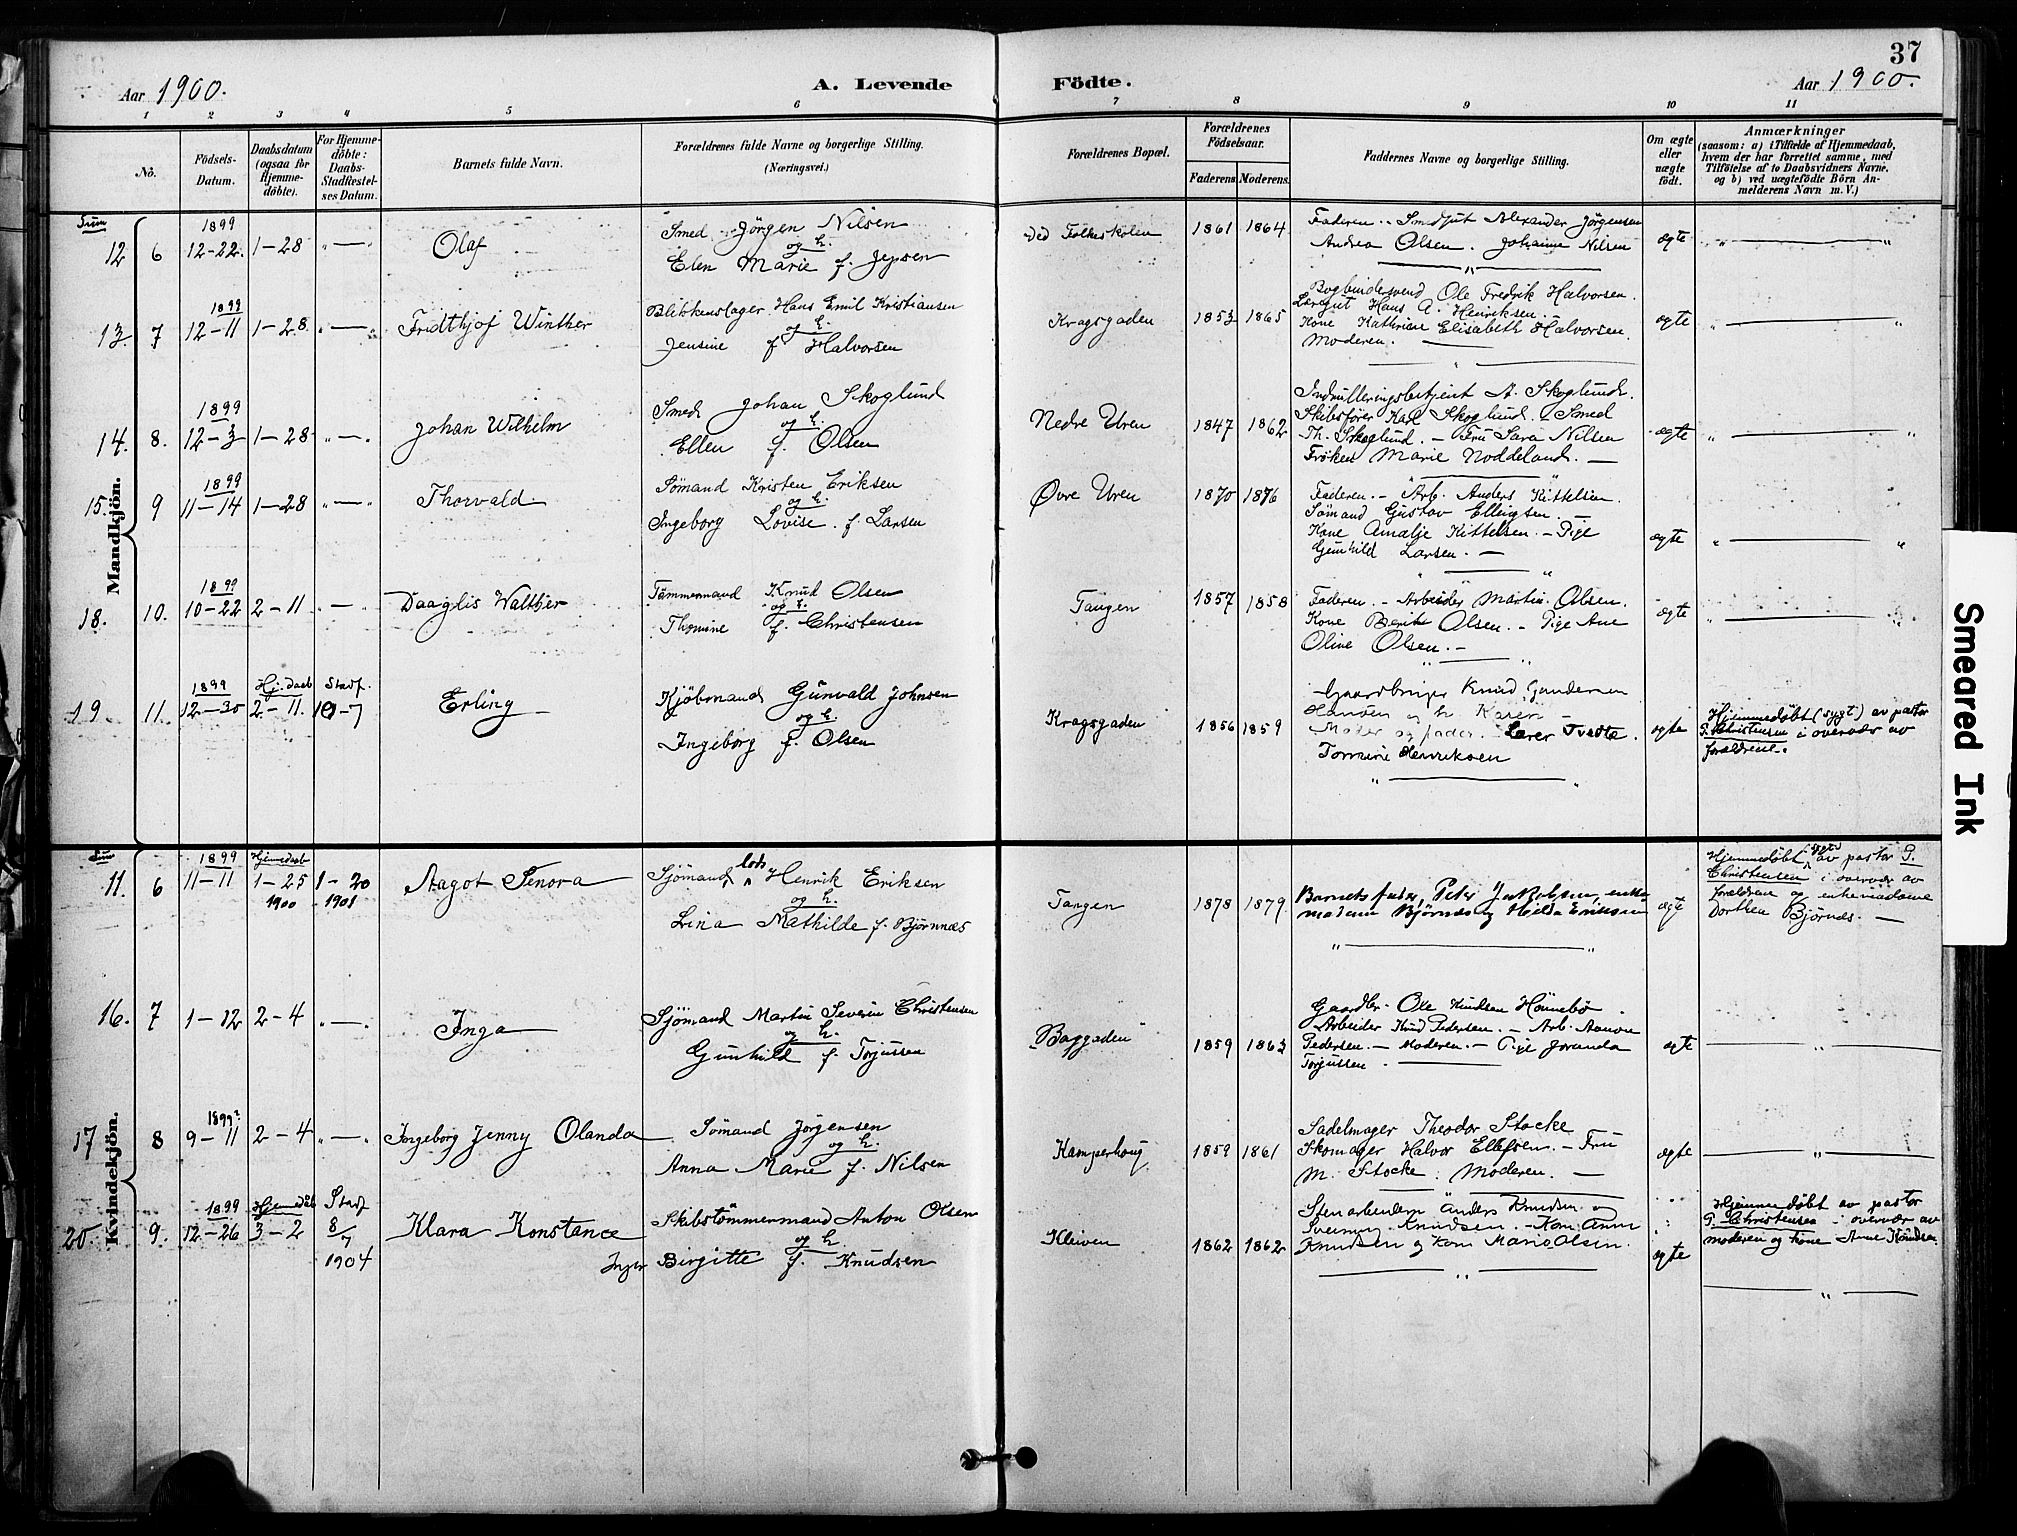 37
Aar 1900. A. Levende Födte. Aar 1900.
1 2 3 4 5 6 7 8 9 10 11
No.
Födsels-Datum.
Daabsdatum (ogsaa for Hjemme-döbte).
For Hjemme-döbte: Daabs-Stadfæstel-ses Datum.
Barnets fulde Navn.
Forældrenes fulde Navne og borgerlige Stilling. (Næringsvei.)
Forældrenes Bopæl.
Forældrenes Födselsaar.
Faderens. Moderens.
Faddernes Navne og borgerlige Stilling.
Om ægte eller uægte födt.
Anmærkninger
(saasom: a) i Tilfælde af Hjemmedaab,
hvem der har forrettet samme, med
Tilföielse af to Daabsvidners Navne,
og b) ved uægtefödte Börn An-
melderens Navn m. V.)
Mandkjön.
Sum
12 6 1899 12-22. 1-28 "—" Olaf
Smed Jörgen Nilsen
og h.
Elen Marie f. Jepsen
Ved Folkeskolen 1861 1864
Faderen. - Smedjut Alexander Jörgensen
Andrea Olsen. Johanne Nilsen
ægte " — "
13 7 1899 12-11 1-28. "—" Fridthjof Winther
Blikkenslager Hans Emil Kristiansen
og h.
Jensine f. Halvorsen
Kragsgaden 1853 1865
Bogbindersvend Ole Fredrik Halvorsen.
Hans A. Henriksen.
Kone Kathrine Elisabeth Halvorsen.
Moderen. —
ægte " — "
14. 8. 1899 12-3 1-28 "—" Johan Wilhelm
Smed Johan Skoglund
og h.
Ellen f. Olsen
Nedre Uren 1847 1862
Indrulleringsbetjent A. Skoglund.
Skibsfører Karl Skoglund. Smed
Th. Skoglund. - Fru Sara Nilsen
Frøken Marie Noddeland. —
ægte " — "
15. 9 1899 11-14 1-28 "—" Thorvald
Sømand Kristen Eriksen
og h.
Ingeborg Lovise. f. Larsen
Øvre Uren 1870 1876
Faderen. - Arb. Anders Kittelsen.
Sømand Gustav Ellingsen. —
Kone Amalje Kittelsen. - Pige
Gunhild Larsen. —
ægte " — "
18. 10. 1899 10-22 2-11 "—" Daaglis Walther
Tömmermand Knud Olsen
og h.
Thomine f. Christensen
Tangen 1857 1858
Faderen. - Arbeider Martin Olsen.
Kone Olsen. - Pige Ane
Oline Olsen. -
ægte " — "
19 11. 1899 12-30 Hj.daab 2-11. Stadf. 10-7 Erling
Kjöbmand Gunvald Johnsen
og h.
Ingeborg f. Olsen
Kragsgaden 1856 1859
Gaardbruger Knud Gundersen
Hansen og h. Karen -
Moder og fader. Lærer Tvedte.
Tomine Henriksen
ægte
Hjemmedöbt (sygt) av pastor
P. Christensen i overvær av
forældrene.
Kvindekjön.
Sum
11. 6 1899 11-11 Hjemmedaab 1-25 1900 1-20 1901 Aagot Senora
Sjömand lods Henrik Eriksen
og h.
Lina Mathilde f. Björnnæs
Tangen 1878 1879.
Barnets fader, Peter Jakobsen, enke-
madam Bjørnes og Hilda Eriksen
ægte
Hjemmedöbt sygt av pastor P.
Christensen i overvær av
forældren og enkemadame
Dorthea Bjørnes. —
16. 7 1-12 2-4 "—" Inga
Sjömand Martin Severin Christensen
og h.
Gunhild f. Torjussen
Baggaden 1859 1863
Gaardbr. Ole Knudsen Hönnebö
Arbeider Knud Pedersen. - Arb. Aanon
Pedersen. - Moderen. - Pige Joranda
Torjussen. —
ægte — " —
17 8 1899? 9-11 2-4 "—" Ingeborg Jenny Olanda
Sømand Jörgensen
og h.
Anna Marie f. Nilsen
Kamperhoug 1859 1861
Sadelmager Theodor Stocke
Skomager Halvor Ellefsen. - Fru
M. Stocke. Moderen. —
ægte — " —
20. 9. 1899 12-26 Hjemmedöb 3-2 Stadf 8/7 1904 Klara Konstance
Skibstömmermand Anton Olsen
og h.
Inger Birgitte f. Knudsen
Kleiven 1862 1862
Stenarbeidern Anders Knudsen og
Knudsen. - Kone Anne
Knudsen og kone Marie Olsen.
ægte
Hjemmedöbt av pastor
P. Christensen i overvær av
moderen og kone Anne Knudsen.
Smeared Ink